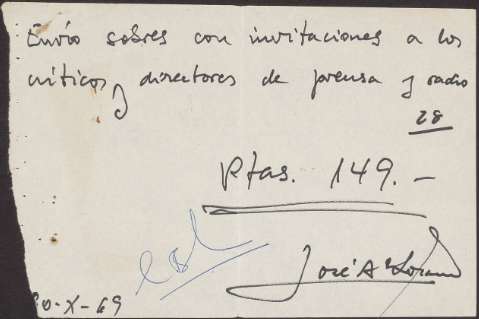 Envío sobres con invitaciones a los
críticos y directores de prensa y radio
28
Ptas. 149.—
José A.
30-X-69